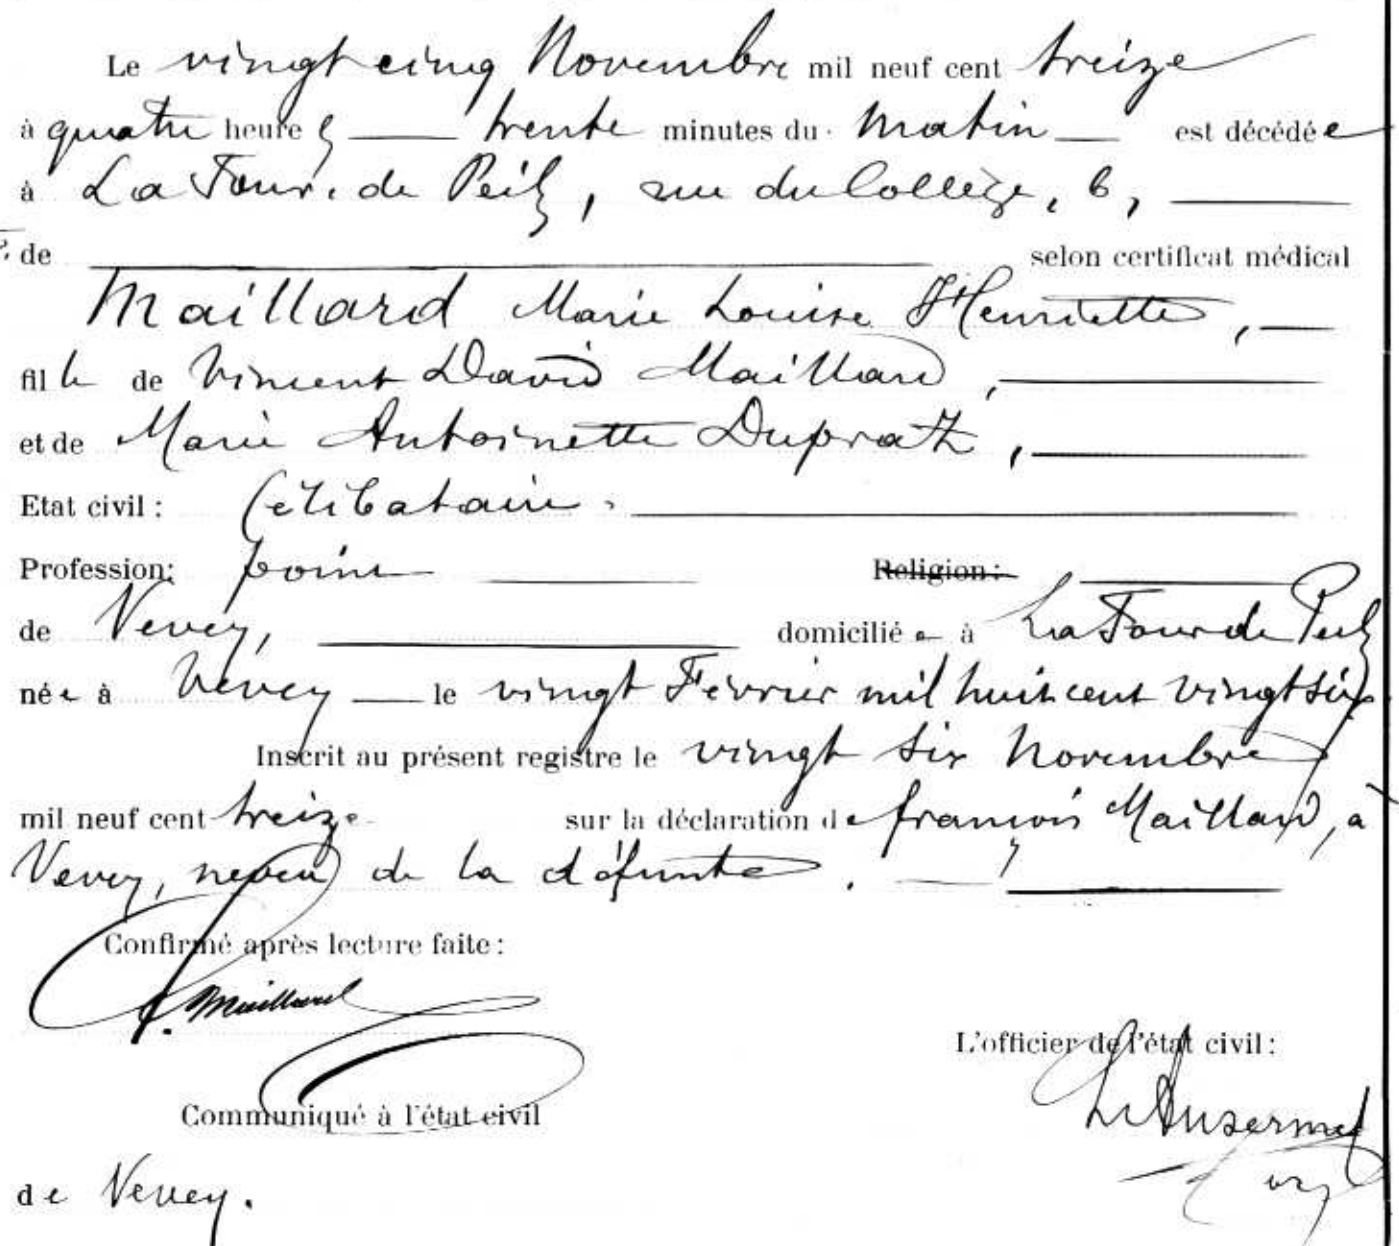 Le vingt cinq Novembre mil neuf cent treize
à quatre heures trente minutes du matin est décédée
à La Tour de Peilz, rue du Collège, 6,
de selon certificat médical
Maillard Marie Louise Henriette,
fille de Vincent David Maillard,
et de Marie Antoinette Dupratz,
Etat civil: Célibataire.
Profession: Religion:
de Vevey, domiciliée à La Tour de Peilz
née à Vevey le vingt Février mil huit cent vingt six
Inscrit au présent registre le vingt six Novembre
mil neuf cent treize sur la déclaration de françois Maillard, à
Vevey, neveu de la défunte.
Confirmé après lecture faite:
F. Maillard
L'officier de l'état civil:
Communiqué à l'état civil
Ansermet
de Vevey.